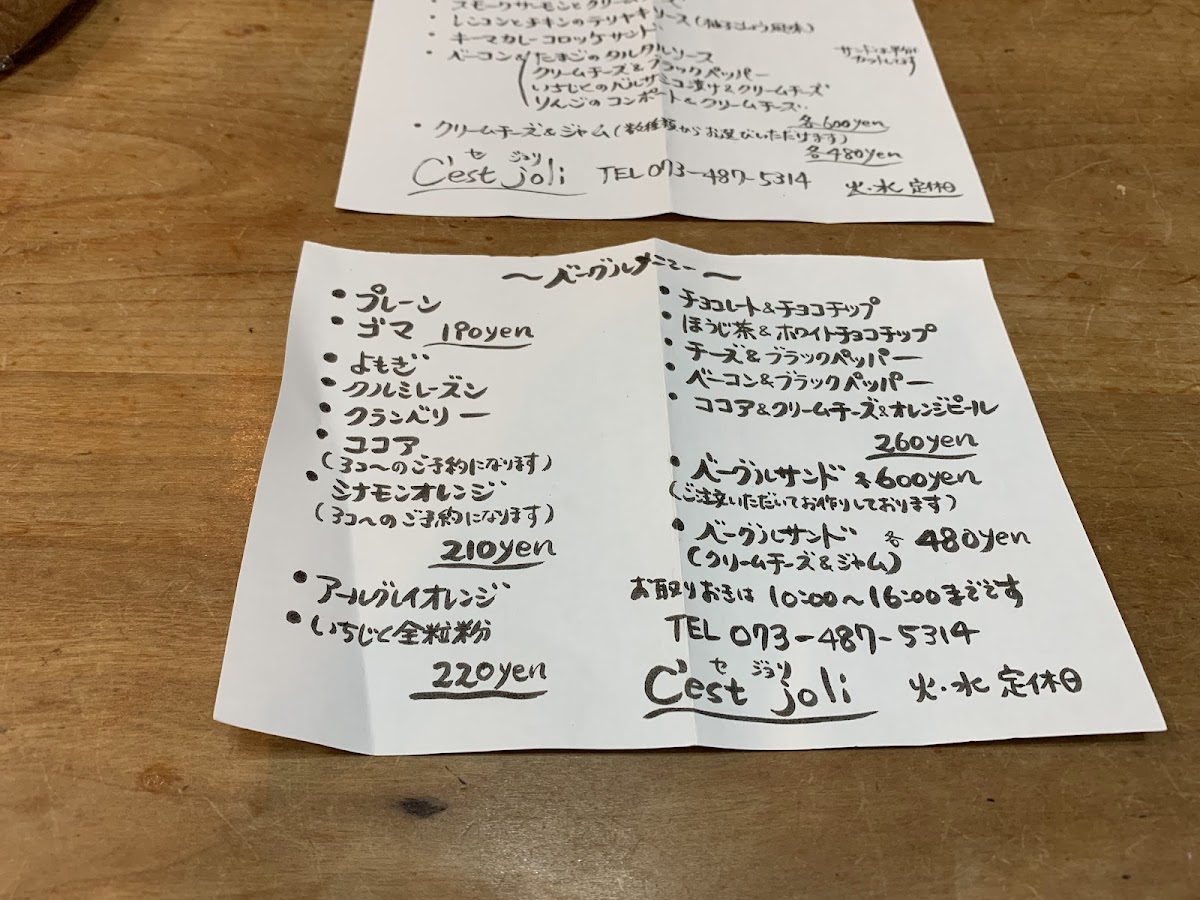 ・スモークサーモンとクリーム
・レンコンとチキンのテリヤキソース(柚子こしょう風味)
・キーマカレーコロッケサンド
・ベーコン&たまごのタルタルソース
クリームチーズ&ブラックペッパー
いちじくのバルサミコ漬け&クリームチーズ
りんごのコンポート&クリームチーズ
サンドは半分
カットしてます
各600yen
・クリームチーズ&ジャム(数種類からお選びいただけます)
各480yen
セ ジョリ
C'est joli TEL 073-487-5314 火・水 定休日
〜ベーグルメニュー〜
・プレーン
・ゴマ 190yen
・よもぎ
・クルミレーズン
・クランベリー
・ココア
(3コ〜のご予約になります)
・シナモンオレンジ
(3コ〜のご予約になります)
210yen
・アールグレイオレンジ
・いちじく全粒粉
220yen
・チョコレート&チョコチップ
・ほうじ茶&ホワイトチョコチップ
・チーズ&ブラックペッパー
・ベーコン&ブラックペッパー
・ココア&クリームチーズ&オレンジピール
260yen
・ベーグルサンド 各600yen
(ご注文いただいてお作りしております)
・ベーグルサンド 各 480yen
(クリームチーズ&ジャム)
お取りおきは 10:00〜16:00までです
TEL 073-487-5314
セ ジョリ
C'est joli 火・水 定休日